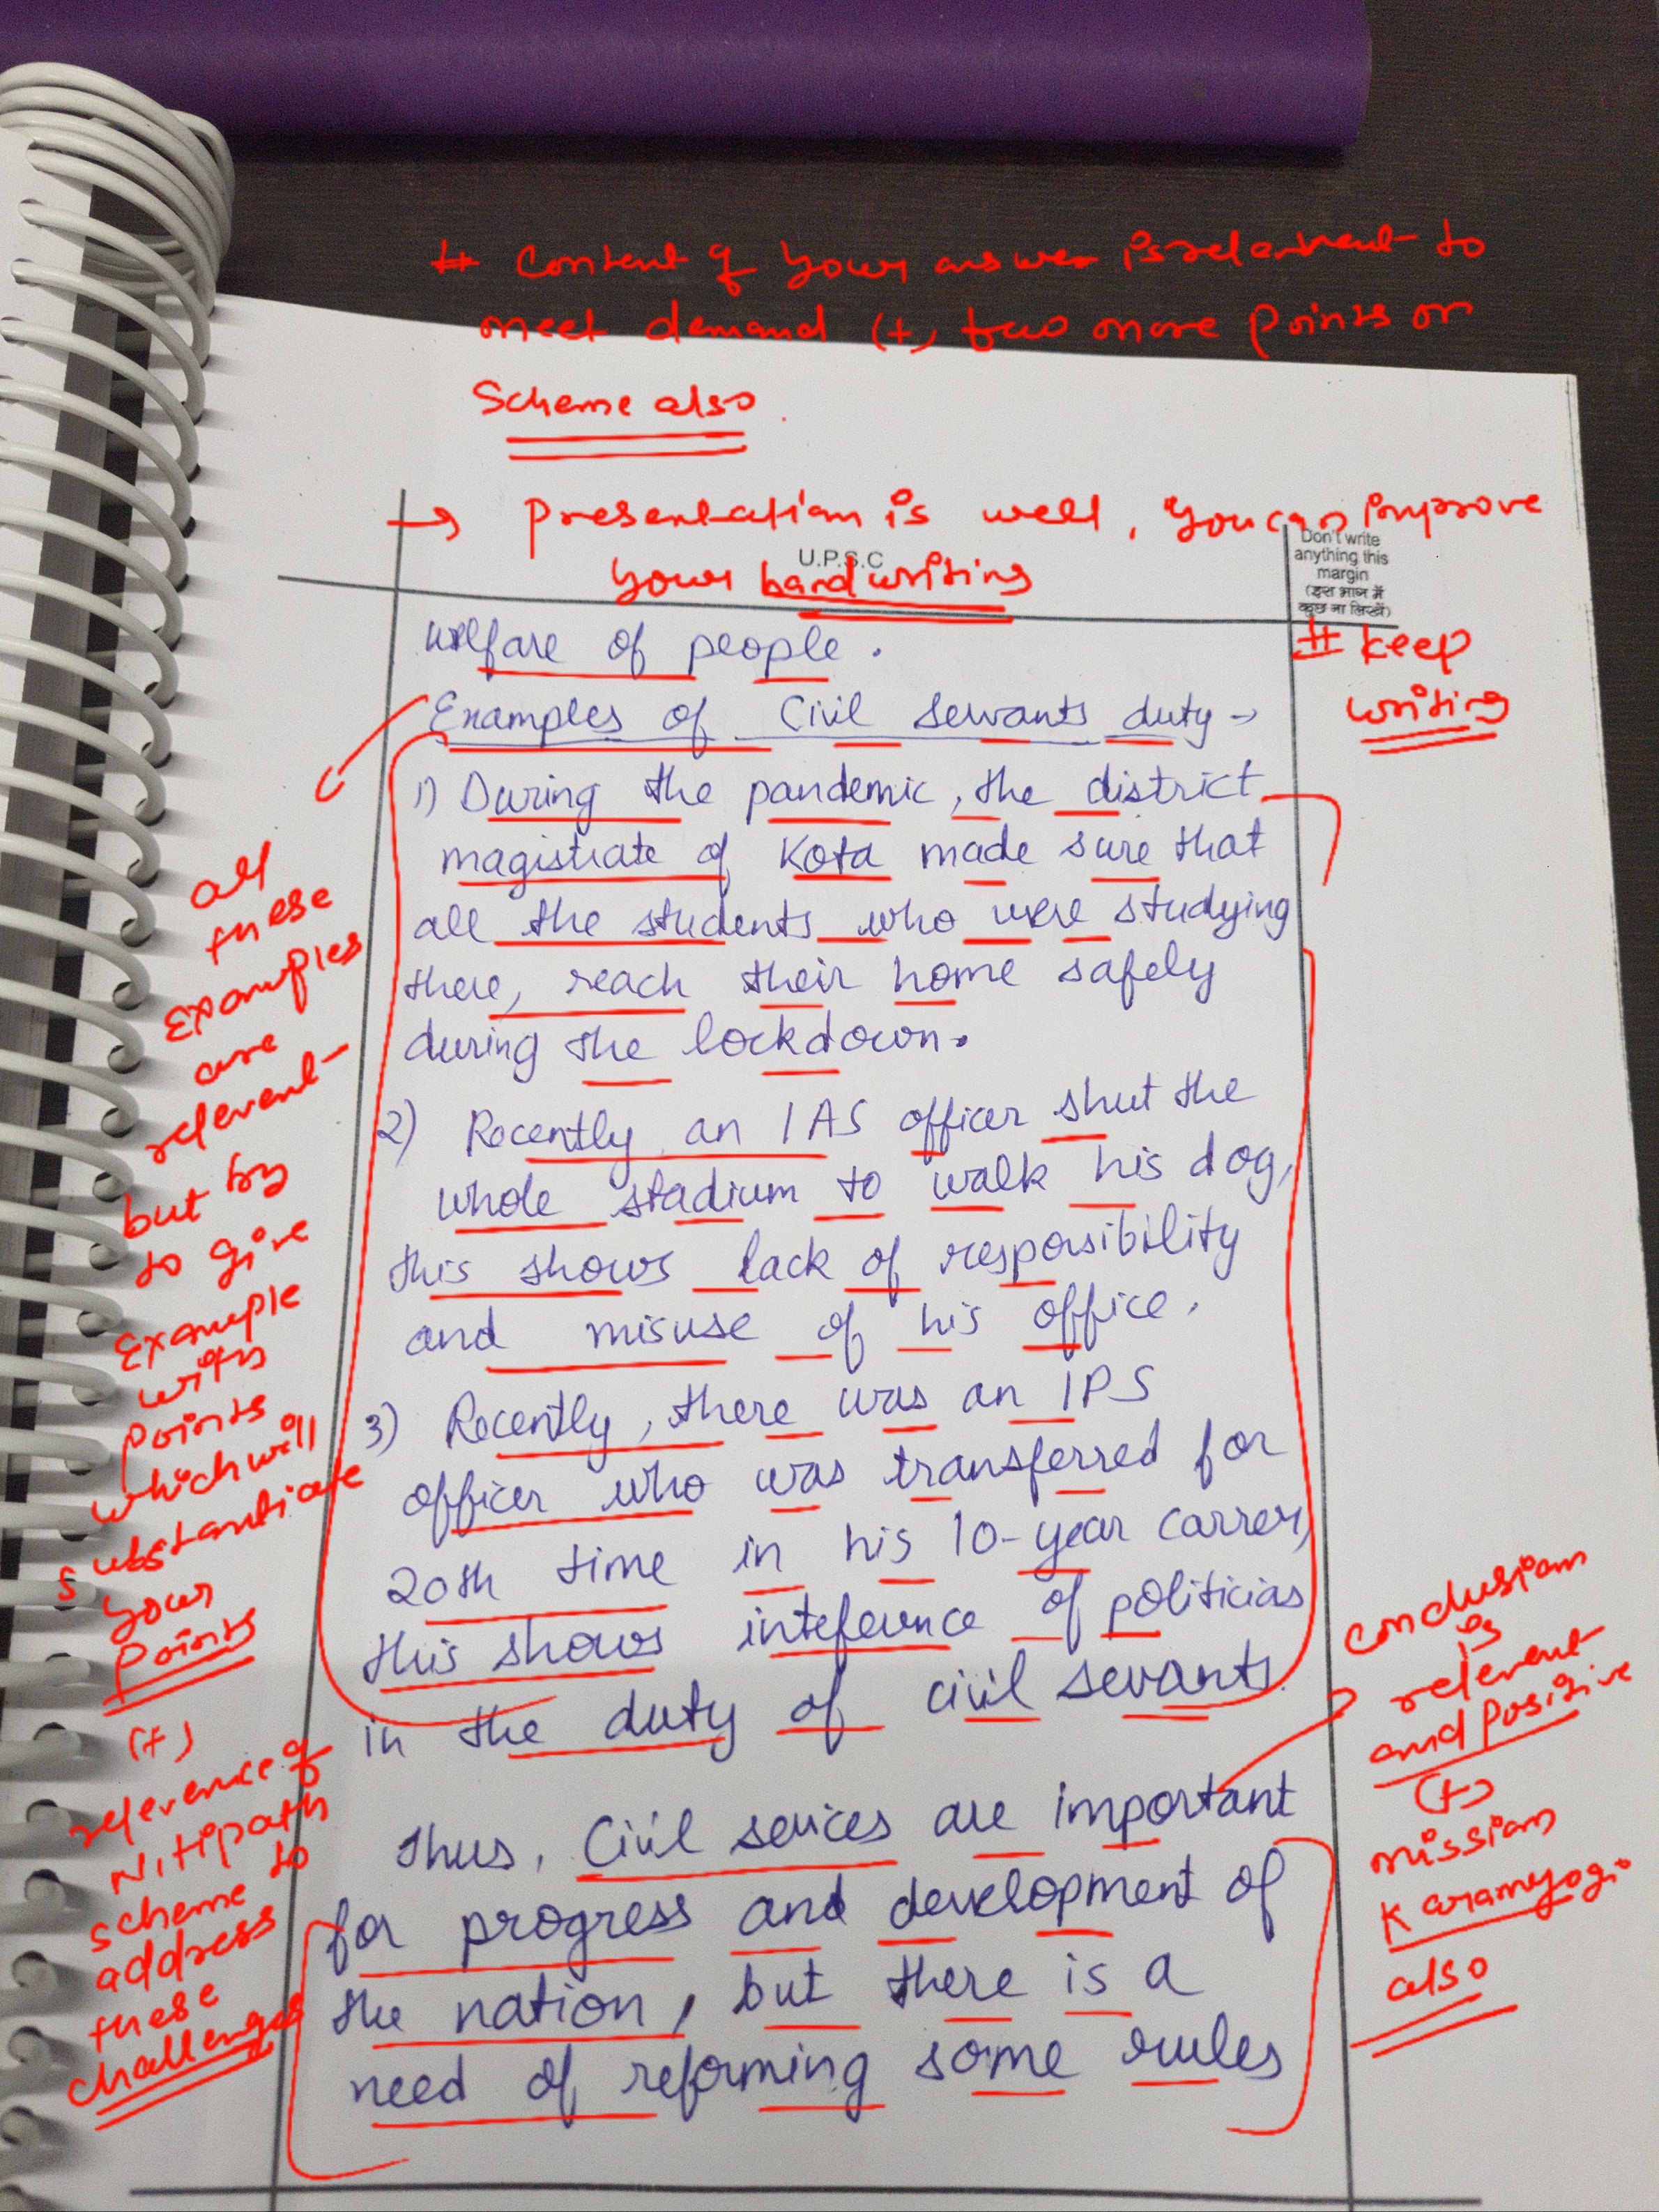 # Content of your answer is relevent to
meet demand (+) two more points or
Scheme also
→ Presentation is well, you can improve
your handwriting
U.P.S.C
Don't write
anything this
margin
(इस भाग में
कुछ ना लिखें)
# keep
writing
welfare of people.
Examples of Civil servants duty→
1) During the pandemic, the district
magistrate of Kota made sure that
all the students who were studying
there, reach their home safely
during the lockdown.
2) Recently an IAS officer shut the
whole stadium to walk his dog,
this shows lack of responsibility
and misuse of his office.
3) Recently, there was an IPS
officer who was transferred for
20th time in his 10-year carrer,
this shows inteference of politicias
in the duty of civil sevants.
Thus, Civil sevices are important
for progress and development of
the nation, but there is a
need of reforming some rules
all
these
examples
are
relevent
but try
to give
Example
with
points
which will
substantiate
your
points
(+)
reference of
Nitipath
scheme to
address
these
challenges
conclusion
is
relevent
and positive
(+)
mission
Karamyogi
also